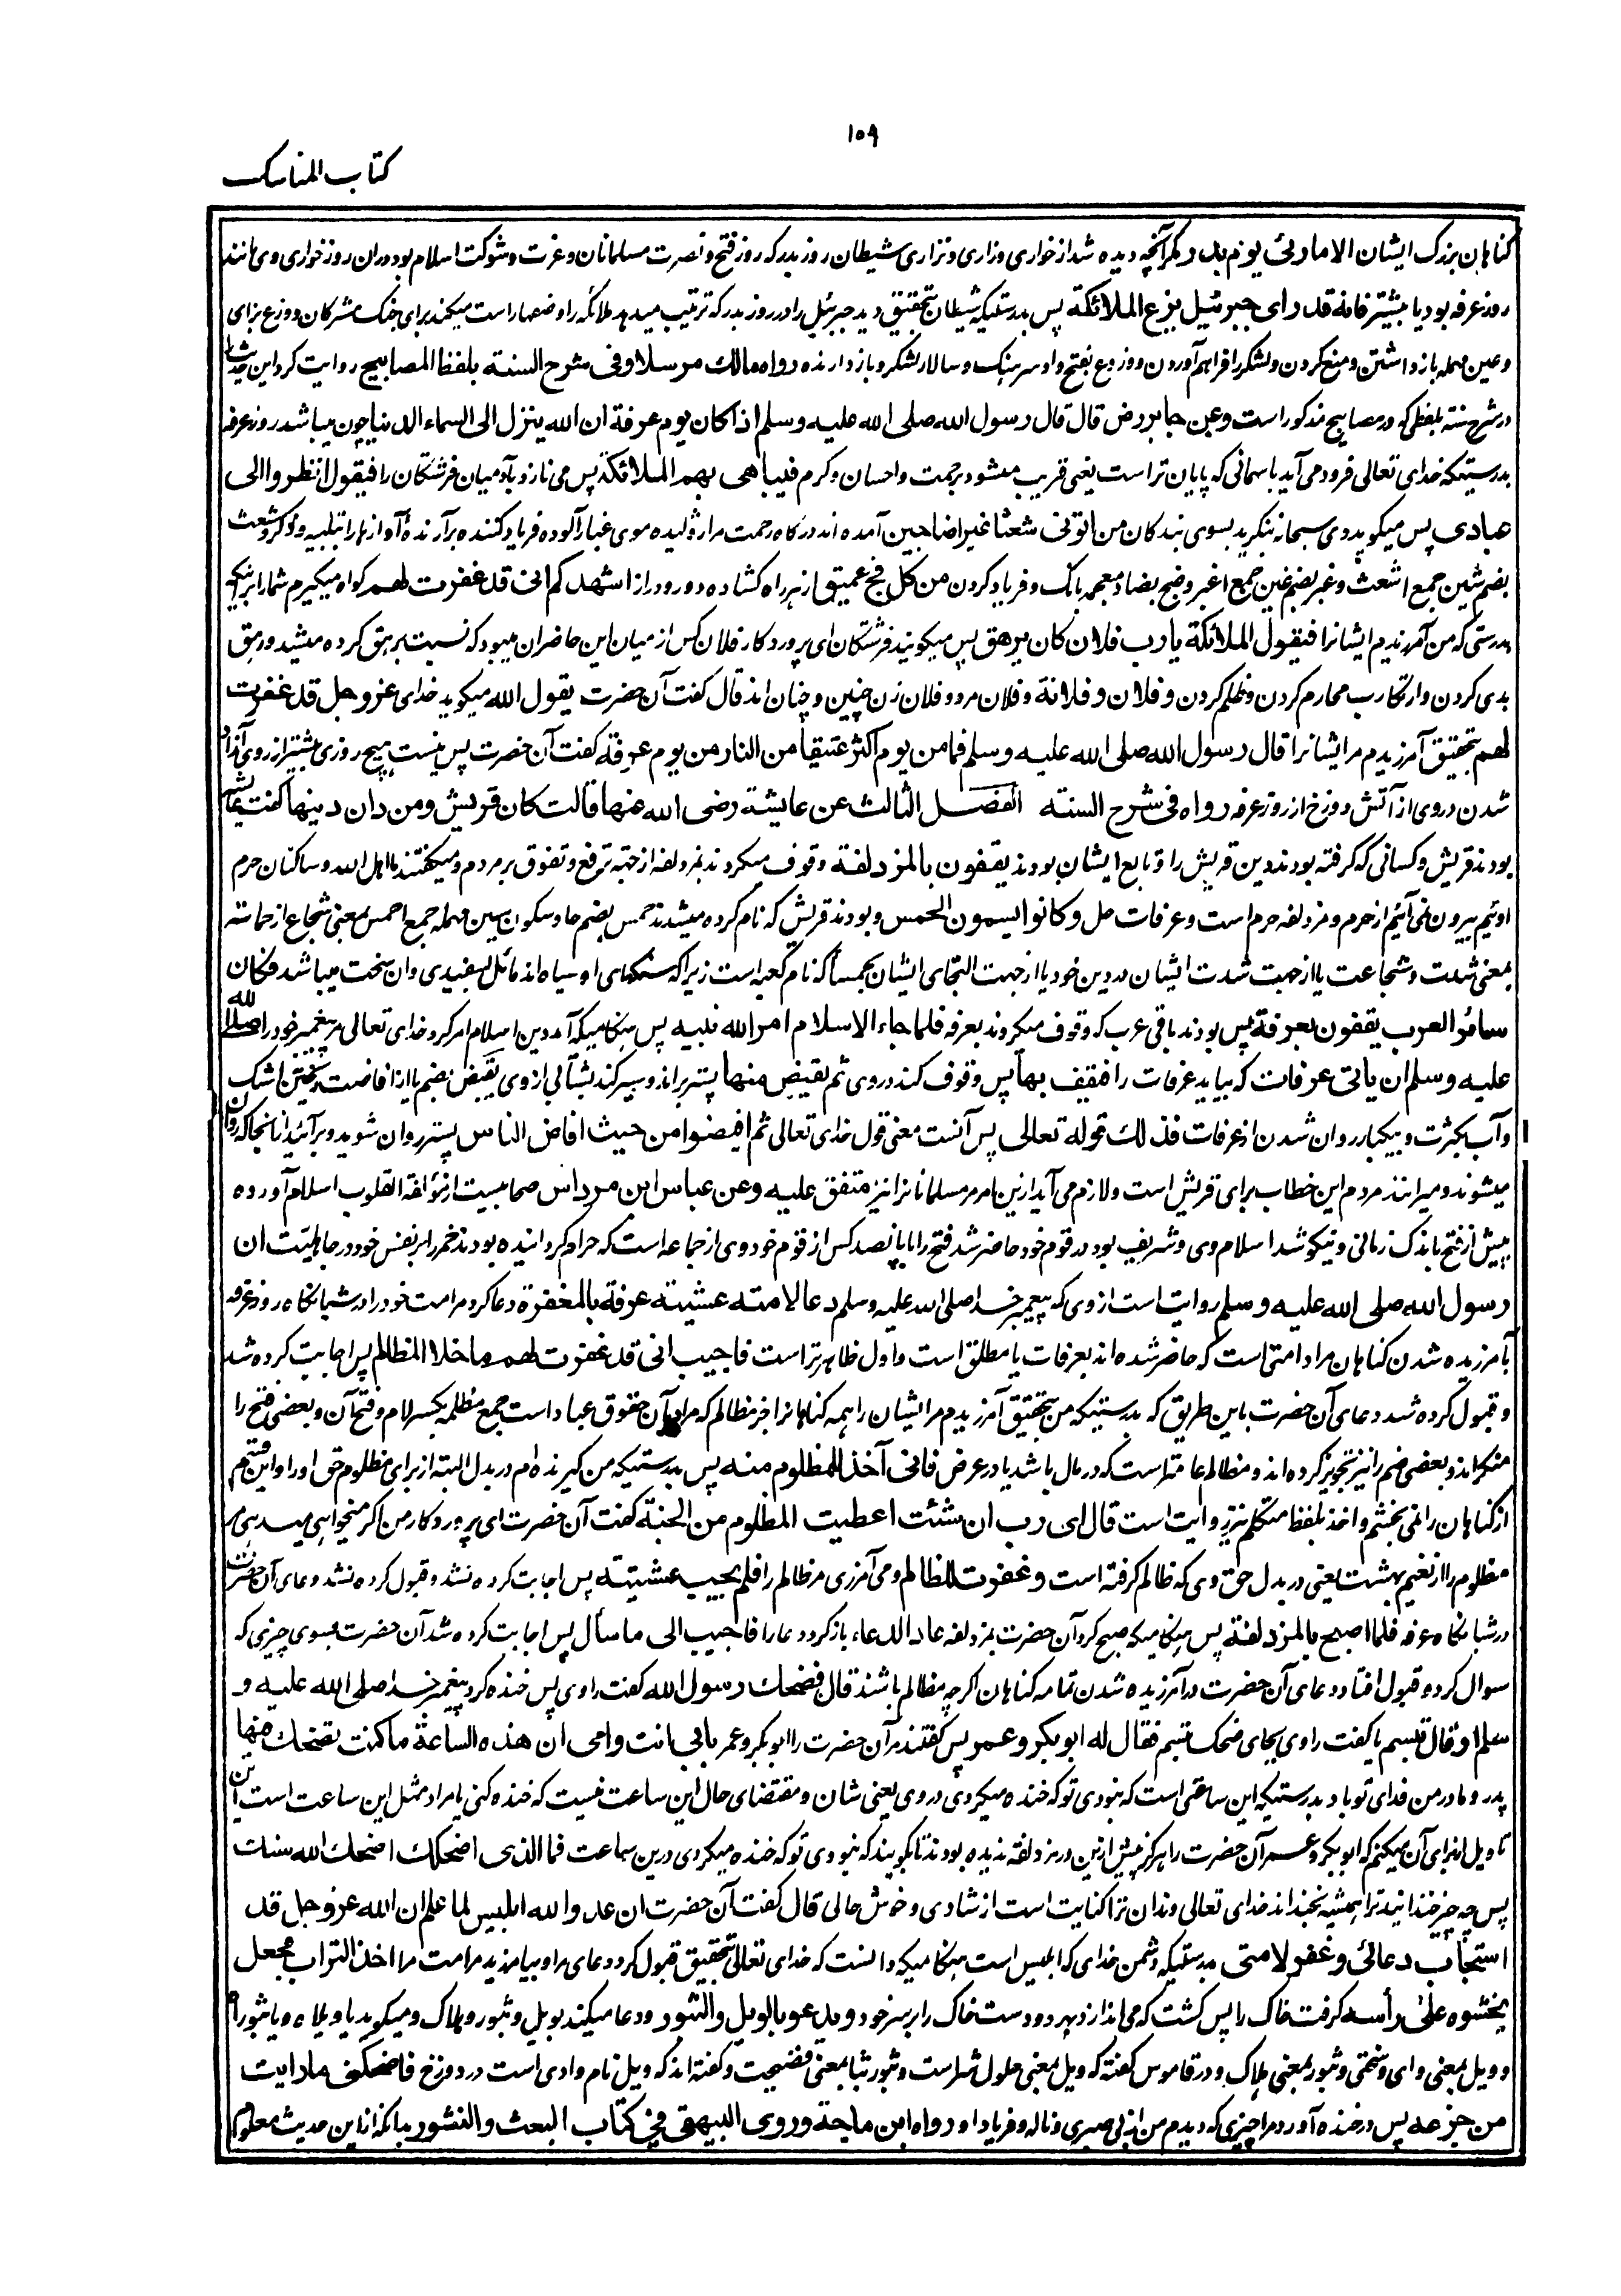 ۱۵۹
کتاب المناسک
گناهان بزرگ ایشان الا ما رئی یوم بدر مگر آنچه دیده شد از خواری وزاری ونزاری شیطان روز بدر که روز فتح ونصرت مسلمانان وعزت وشوکت اسلام بود دران روز خواری وی مانند
روز عرفه بود یا بیشتر فانه قد رای جبرئیل یزع الملائکة پس بدرستیکه شیطان بتحقیق دید جبرئیل را در روز بدر که ترتیب میدهد ملائکه را وصفها راست میکند برای جنگ مشرکان ووزع بزای
وعین مهمله بازداشتن ومنع کردن ولشکر را فراهم آوردن ووزوع بفتح واو سرهنگ وسالار لشکر وبازدارنده رواه مالک مرسلا وفی شرح السنة بلفظ المصابیح روایت کرد این حدیث را
در شرح سنه بلفظی که در مصابیح مذکور است وعن جابر رض قال قال رسول الله صلی الله علیه وسلم اذا کان یوم عرفة ان الله ینزل الی السماء الدنیا چون میباشد روز عرفه
بدرستیکه خدای تعالی فرود می آید باسمانی که پایان تر است یعنی قریب میشود برحمت واحسان وکرم فیباهی بهم الملائکة پس می نازد بآدمیان فرشتگان را فیقول انظروا الی
عبادی پس میگوید وی سبحانه بنگرید بسوی بندگان من اتونی شعثا غبرا ضاجین آمده اند درگاه رحمت مرا ژولیده موی غبار آلوده فریاد کننده برآرنده آوازها را بتلبیه وذکر وشعث
بضم شین جمع اشعث وغبر بضم غین جمع اغبر وضج بضاد معجمه بانگ وفریاد کردن من کل فج عمیق از هر راه کشاده دور ودراز اشهدکم انی قد غفرت لهم گواه میگیرم شما را براینکه
بدرستی که من آمرزیدم ایشانرا فیقول الملائکة یا رب فلان کان یرهق پس میگویند فرشتگان ای پروردگار فلان کس از میان این حاضران میبود که نسبت برهق کرده میشد ورهق
بدی کردن وارتکاب محارم کردن وظلم کردن وفلان وفلانة وفلان مرد وفلان زن چنین وچنان اند قال گفت آن حضرت یقول الله میگوید خدای عز وجل قد غفرت
لهم بتحقیق آمرزیدم مر ایشانرا قال رسول الله صلی الله علیه وسلم فما من یوم اکثر عتیقا من النار من یوم عرفة گفت آن حضرت پس نیست هیچ روزی بیشتر از روی آزاد
شدن در وی از آتش دوزخ از روز عرفه رواه فی شرح السنة الفصل الثالث عن عایشة رضی الله عنها قالت کان قریش ومن دان دینها گفت عایشه
بودند قریش وکسانی که گرفته بودند دین قریش را وتابع ایشان بودند یقفون بالمزدلفة وقوف میکردند بمزدلفه از جهة ترفع وتفوق بر مردم ومیگفتند ما اهل الله وساکنان حرم
اوئیم بیرون نمی آئیم از حرم ومزدلفه حرم است وعرفات حل وکانوا یسمون الحمس وبودند قریش که نام کرده میشدند حمس بضم حا وسکون میم وسین مهمله جمع احمس بمعنی شجاع از حماسة
بمعنی شدت وشجاعت یا از جهت شدت ایشان در دین خود یا از جهت التجای ایشان بحمسا که نام کعبه است زیرا که سنگهای او سیاه اند مائل بسفیدی وان سخت میباشد فکان
سائر العرب یقفون بعرفة پس بودند باقی عرب که وقوف میکردند بعرفه فلما جاء الاسلام امر الله نبیه پس هنگامیکه آمد دین اسلام امر کرد خدای تعالی مر پیغمبر خود را صلی الله
علیه وسلم ان یاتی عرفات که بیاید عرفات را فیقف بها پس وقوف کند در وی ثم یفیض منها پستر براند وسیر کند بشتابی از وی یفیض بضم یا از افاضت ریختن اشک
وآب بکثرت وبیکبار روان شدن از عرفات فذلک قوله تعالی پس آنست معنی قول خدای تعالی ثم افیضوا من حیث افاض الناس پستر روان شوید وبرآئید از آنجا که روان
میشوند ومیرانند مردم این خطاب برای قریش است ولازم می آید ازین امر مر مسلمانانرا نیز متفق علیه وعن عباس ابن مرداس صحابیست از مؤلفة القلوب اسلام آورده
پیش از فتح باندک زمانی ونیکو شد اسلام وی وشریف بود در قوم خود حاضر شد فتح را با پانصد کس از قوم خود وی از جماعه است که حرام گردانیده بودند خمر را بر نفس خود در جاهلیت ان
رسول الله صلی الله علیه وسلم روایت است از وی که پیغمبر خدا صلی الله علیه وسلم دعا لامته عشیة عرفة بالمغفرة دعا کرد مر امت خود را در شبانگاه روز عرفه
بآمرزیده شدن گناهان مراد امتی است که حاضر شده اند بعرفات یا مطلق است واول ظاهرتر است فاجیب انی قد غفرت لهم ما خلا المظالم پس اجابت کرده شد
وقبول کرده شد دعای آن حضرت باین طریق که بدرستیکه من بتحقیق آمرزیدم مر ایشان را همه گناهانرا جز مظالم که مراد بآن حقوق عباد است جمع مظلمه بکسر لام وفتح آن وبعضی فتح را
منکر اند وبعضی ضم را نیز تجویز کرده اند ومظالم عام تر است که در مال باشد یا در عرض فانی آخذ للمظلوم منه پس بدرستیکه من گیرنده ام در بدل البته از برای مظلوم حق او را واین قسم
از گناهان را نمی بخشم واخذ بلفظ متکلم نیز روایت است قال ای رب ان شئت اعطیت المظلوم من الجنة گفت آن حضرت ای پروردگار من اگر میخواهی میدهی مر
مظلوم را از نعیم بهشت یعنی در بدل حق وی که ظالم گرفته است وغفرت للظالم ومی آمرزی مر ظالم را فلم یجب عشیته پس اجابت کرده نشد وقبول کرده نشد دعای آن حضرت
در شبانگاه عرفه فلما اصبح بالمزدلفة پس هنگامیکه صبح کرد آن حضرت بمزدلفه عاد الدعاء باز کرد دعا را فاجیب الی ما سأل پس اجابت کرده شد آن حضرت بسوی چیزی که
سوال کرد وقبول افتاد دعای آن حضرت در آمرزیده شدن تمامه گناهان اگرچه مظالم باشند قال فضحک رسول الله گفت راوی پس خنده کرد پیغمبر خدا صلی الله علیه و
سلم او قال تبسم یا گفت راوی بجای ضحک تبسم فقال له ابو بکر وعمر پس گفتند مر آن حضرت را ابو بکر وعمر بابی انت وامی ان هذه الساعة ما کنت تضحک فیها
پدر ومادر من فدای تو باد بدرستیکه این ساعتی است که نبودی تو که خنده میکردی در وی یعنی شان ومقتضای حال این ساعت نیست که خنده کنی یا مراد مثل این ساعت است این
تاویل از برای آن میکنم که ابو بکر وعمر آن حضرت را هرگز پیش ازین در مزدلفه ندیده بودند تا بگویند که نبودی تو که خنده میکردی درین ساعت فما الذی اضحکک اضحک الله سنک
پس چه چیز خندانید ترا همیشه بخنداند خدای تعالی دندان ترا کنایت است از شادی وخوش حالی قال گفت آن حضرت ان عدو الله ابلیس لما علم ان الله عز وجل قد
استجاب دعائی وغفر لامتی بدرستیکه دشمن خدای که ابلیس است هنگامیکه دانست که خدای تعالی بتحقیق قبول کرد دعای مرا وبیامرزید مر امت مرا اخذ التراب فجعل
یحثوه علی رأسه گرفت خاک را پس گشت که می اندازد بهر دو دست خاک را بر سر خود ویدعو بالویل والثبور ودعا میکند بویل وثبور وهلاک ومیگوید یا ویلاه ویا ثبوراه
وویل بمعنی وای وسختی وثبور بمعنی هلاک ودر قاموس گفته که ویل بمعنی حلول شر است وثبور بثا بمعنی فضیحت وگفته اند که ویل نام وادی است در دوزخ فاضحکنی ما رایت
من جزعه پس در خنده آورد مرا چیزی که دیدم من از بی صبری وناله وفریاد او رواه ابن ماجة وروی البیهقی فی کتاب البعث والنشور بدانکه ازین حدیث معلوم